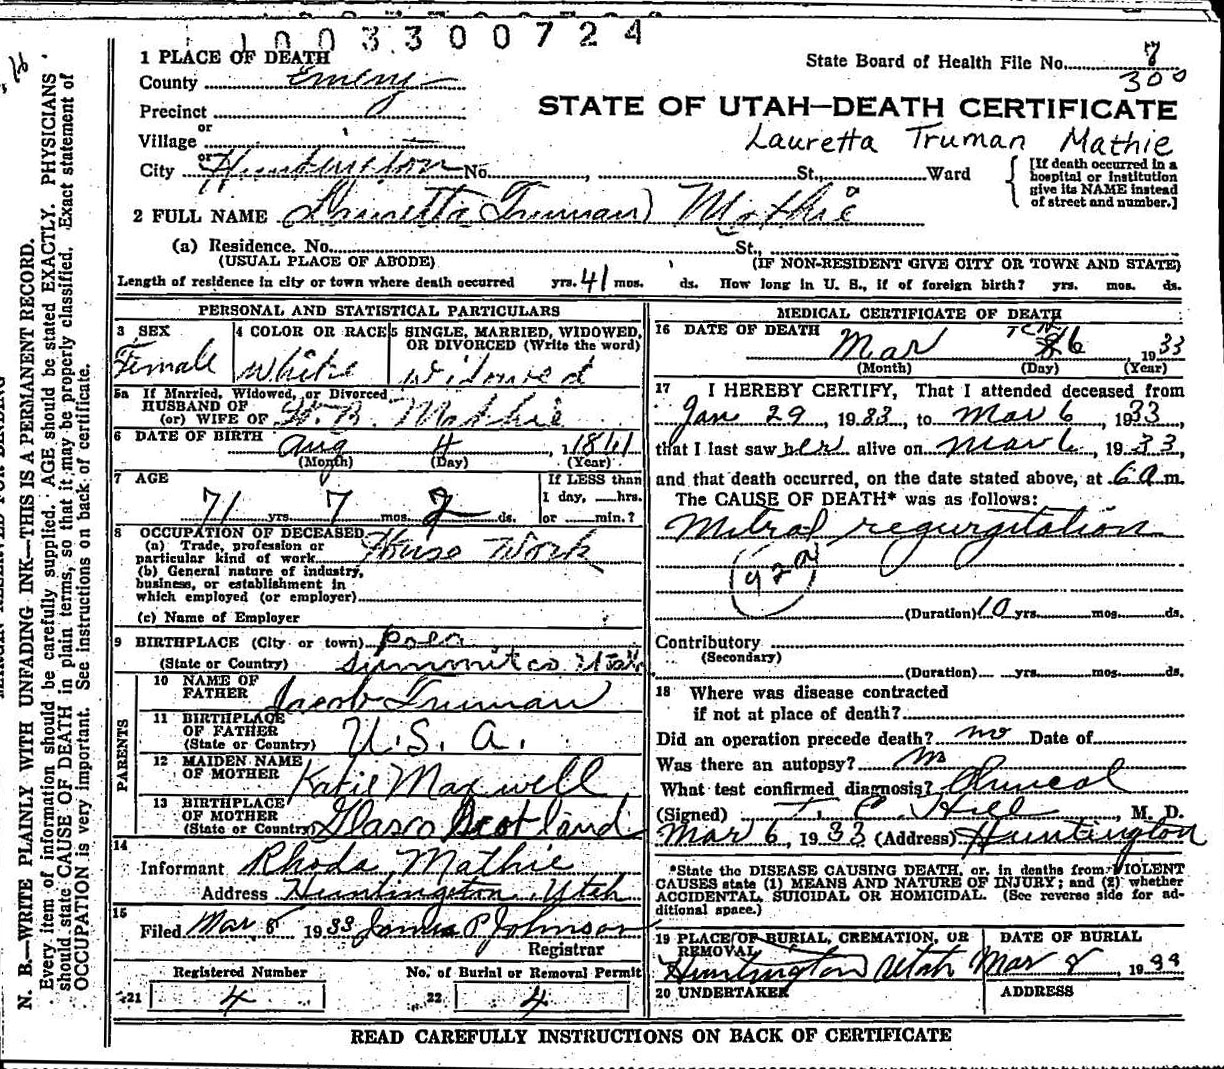 1003300724
1 PLACE OF DEATH
State Board of Health File No. 7
300
County Emery
Precinct
STATE OF UTAH—DEATH CERTIFICATE
or
Village
Lauretta Truman Mathie
or
City Huntington No. , St., Ward
[If death occurred in a
hospital or institution
give its NAME instead
of street and number.]
2 FULL NAME Lauretta Truman Mathie
(a) Residence. No. St.,
(USUAL PLACE OF ABODE) (IF NON-RESIDENT GIVE CITY OR TOWN AND STATE)
Length of residence in city or town where death occurred yrs. 41 mos. ds. How long in U. S., if of foreign birth? yrs. mos. ds.
PERSONAL AND STATISTICAL PARTICULARS
3 SEX
Female
4 COLOR OR RACE
White
5 SINGLE, MARRIED, WIDOWED,
OR DIVORCED (Write the word)
Widowed
5a If Married, Widowed, or Divorced
HUSBAND OF
(or) WIFE OF Mathie
6 DATE OF BIRTH Aug 4, 1861
(Month) (Day) (Year)
7 AGE
71 yrs. 7 mos. 2 ds.
If LESS than
1 day, hrs.
or min.?
8 OCCUPATION OF DECEASED
(a) Trade, profession or
particular kind of work House Work
(b) General nature of industry,
business, or establishment in
which employed (or employer)
(c) Name of Employer
9 BIRTHPLACE (City or town) Poea
(State or Country) Summit co. Utah
PARENTS
10 NAME OF
FATHER Jacob Truman
11 BIRTHPLACE
OF FATHER
(State or Country) U.S.A.
12 MAIDEN NAME
OF MOTHER Katie Maxwell
13 BIRTHPLACE
OF MOTHER
(State or Country) Glasco Scotland
14
Informant Rhoda Mathie
Address Huntington Utah
15
Filed Mar 8 1933 James P Johnson
Registrar
Registered Number No. of Burial or Removal Permit
21 4 22 4
MEDICAL CERTIFICATE OF DEATH
16 DATE OF DEATH
Mar 6, 1933
(Month) (Day) (Year)
17 I HEREBY CERTIFY, That I attended deceased from
Jan 29, 1933, to Mar 6, 1933,
that I last saw her alive on Mar 6, 1933,
and that death occurred, on the date stated above, at 6 a m.
The CAUSE OF DEATH* was as follows:
Mitral regurgitation
92a
(Duration) 10 yrs. mos. ds.
Contributory
(Secondary)
(Duration) yrs. mos. ds.
18 Where was disease contracted
if not at place of death?
Did an operation precede death? no Date of
Was there an autopsy? no
What test confirmed diagnosis? Clinical
(Signed) T. C. Hill, M. D.
Mar 6, 1933 (Address) Huntington
*State the DISEASE CAUSING DEATH, or, in deaths from VIOLENT
CAUSES state (1) MEANS AND NATURE OF INJURY; and (2) whether
ACCIDENTAL, SUICIDAL OR HOMICIDAL. (See reverse side for ad-
ditional space.)
19 PLACE OF BURIAL, CREMATION, OR
REMOVAL
Huntington Utah
DATE OF BURIAL
Mar 8, 1933
20 UNDERTAKER ADDRESS
READ CAREFULLY INSTRUCTIONS ON BACK OF CERTIFICATE
N. B.—WRITE PLAINLY WITH UNFADING INK—THIS IS A PERMANENT RECORD.
Every item of information should be carefully supplied. AGE should be stated EXACTLY. PHYSICIANS
should state CAUSE OF DEATH in plain terms, so that it may be properly classified. Exact statement of
OCCUPATION is very important. See instructions on back of certificate.